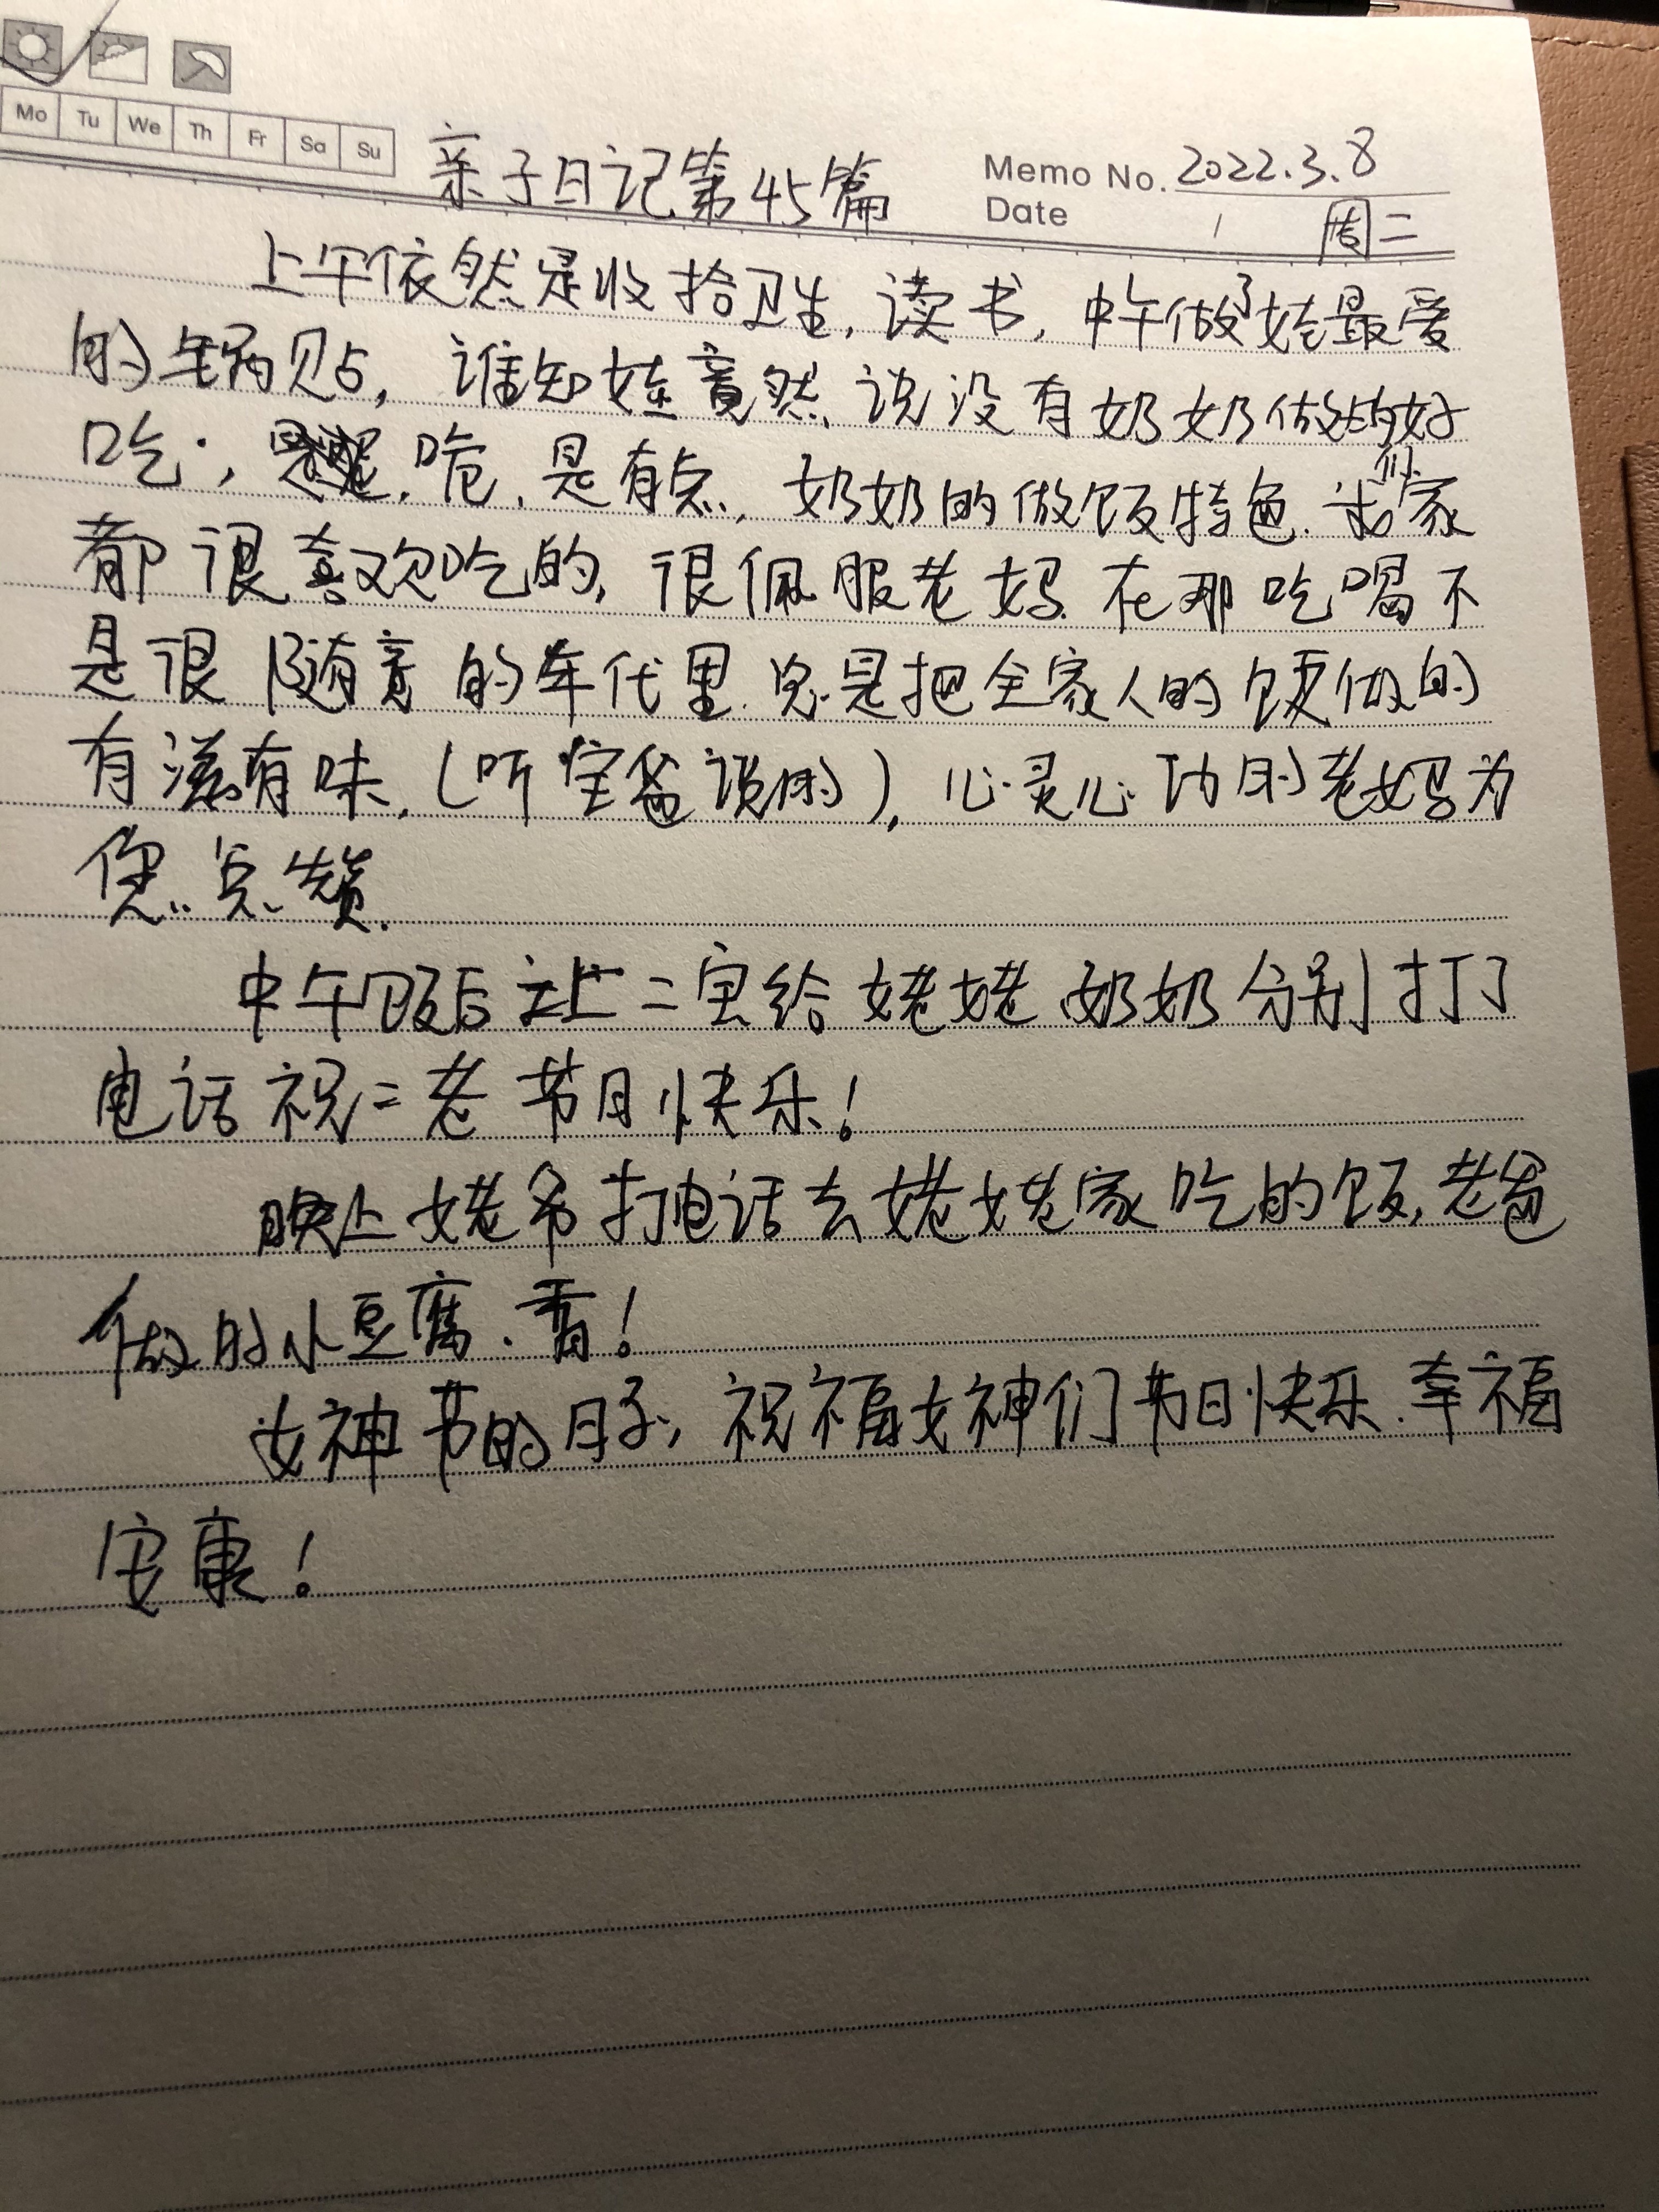 Mo Tu We Th Fr Sa Su
亲子日记第45篇
Memo No. 2022.3.8
Date / 周二
上午依然是收拾卫生,读书,中午做了娃最爱
的锅贴,谁知娃竟然说没有奶奶做的好
吃,是有点,奶奶的做饭特色.我们家
都很喜欢吃的,很佩服老妈.在那吃喝不
是很随意的年代里.总是把全家人的饭做的
有滋有味.(听宝爸说的),心灵心功的老妈为
您点赞.
中午饭后让二宝给姥姥奶奶分别打了
电话祝二老节日快乐!
晚上姥爷打电话去姥姥家吃的饭,老爸
做的小豆腐.香!
女神节的日子,祝福女神们节日快乐.幸福
安康!